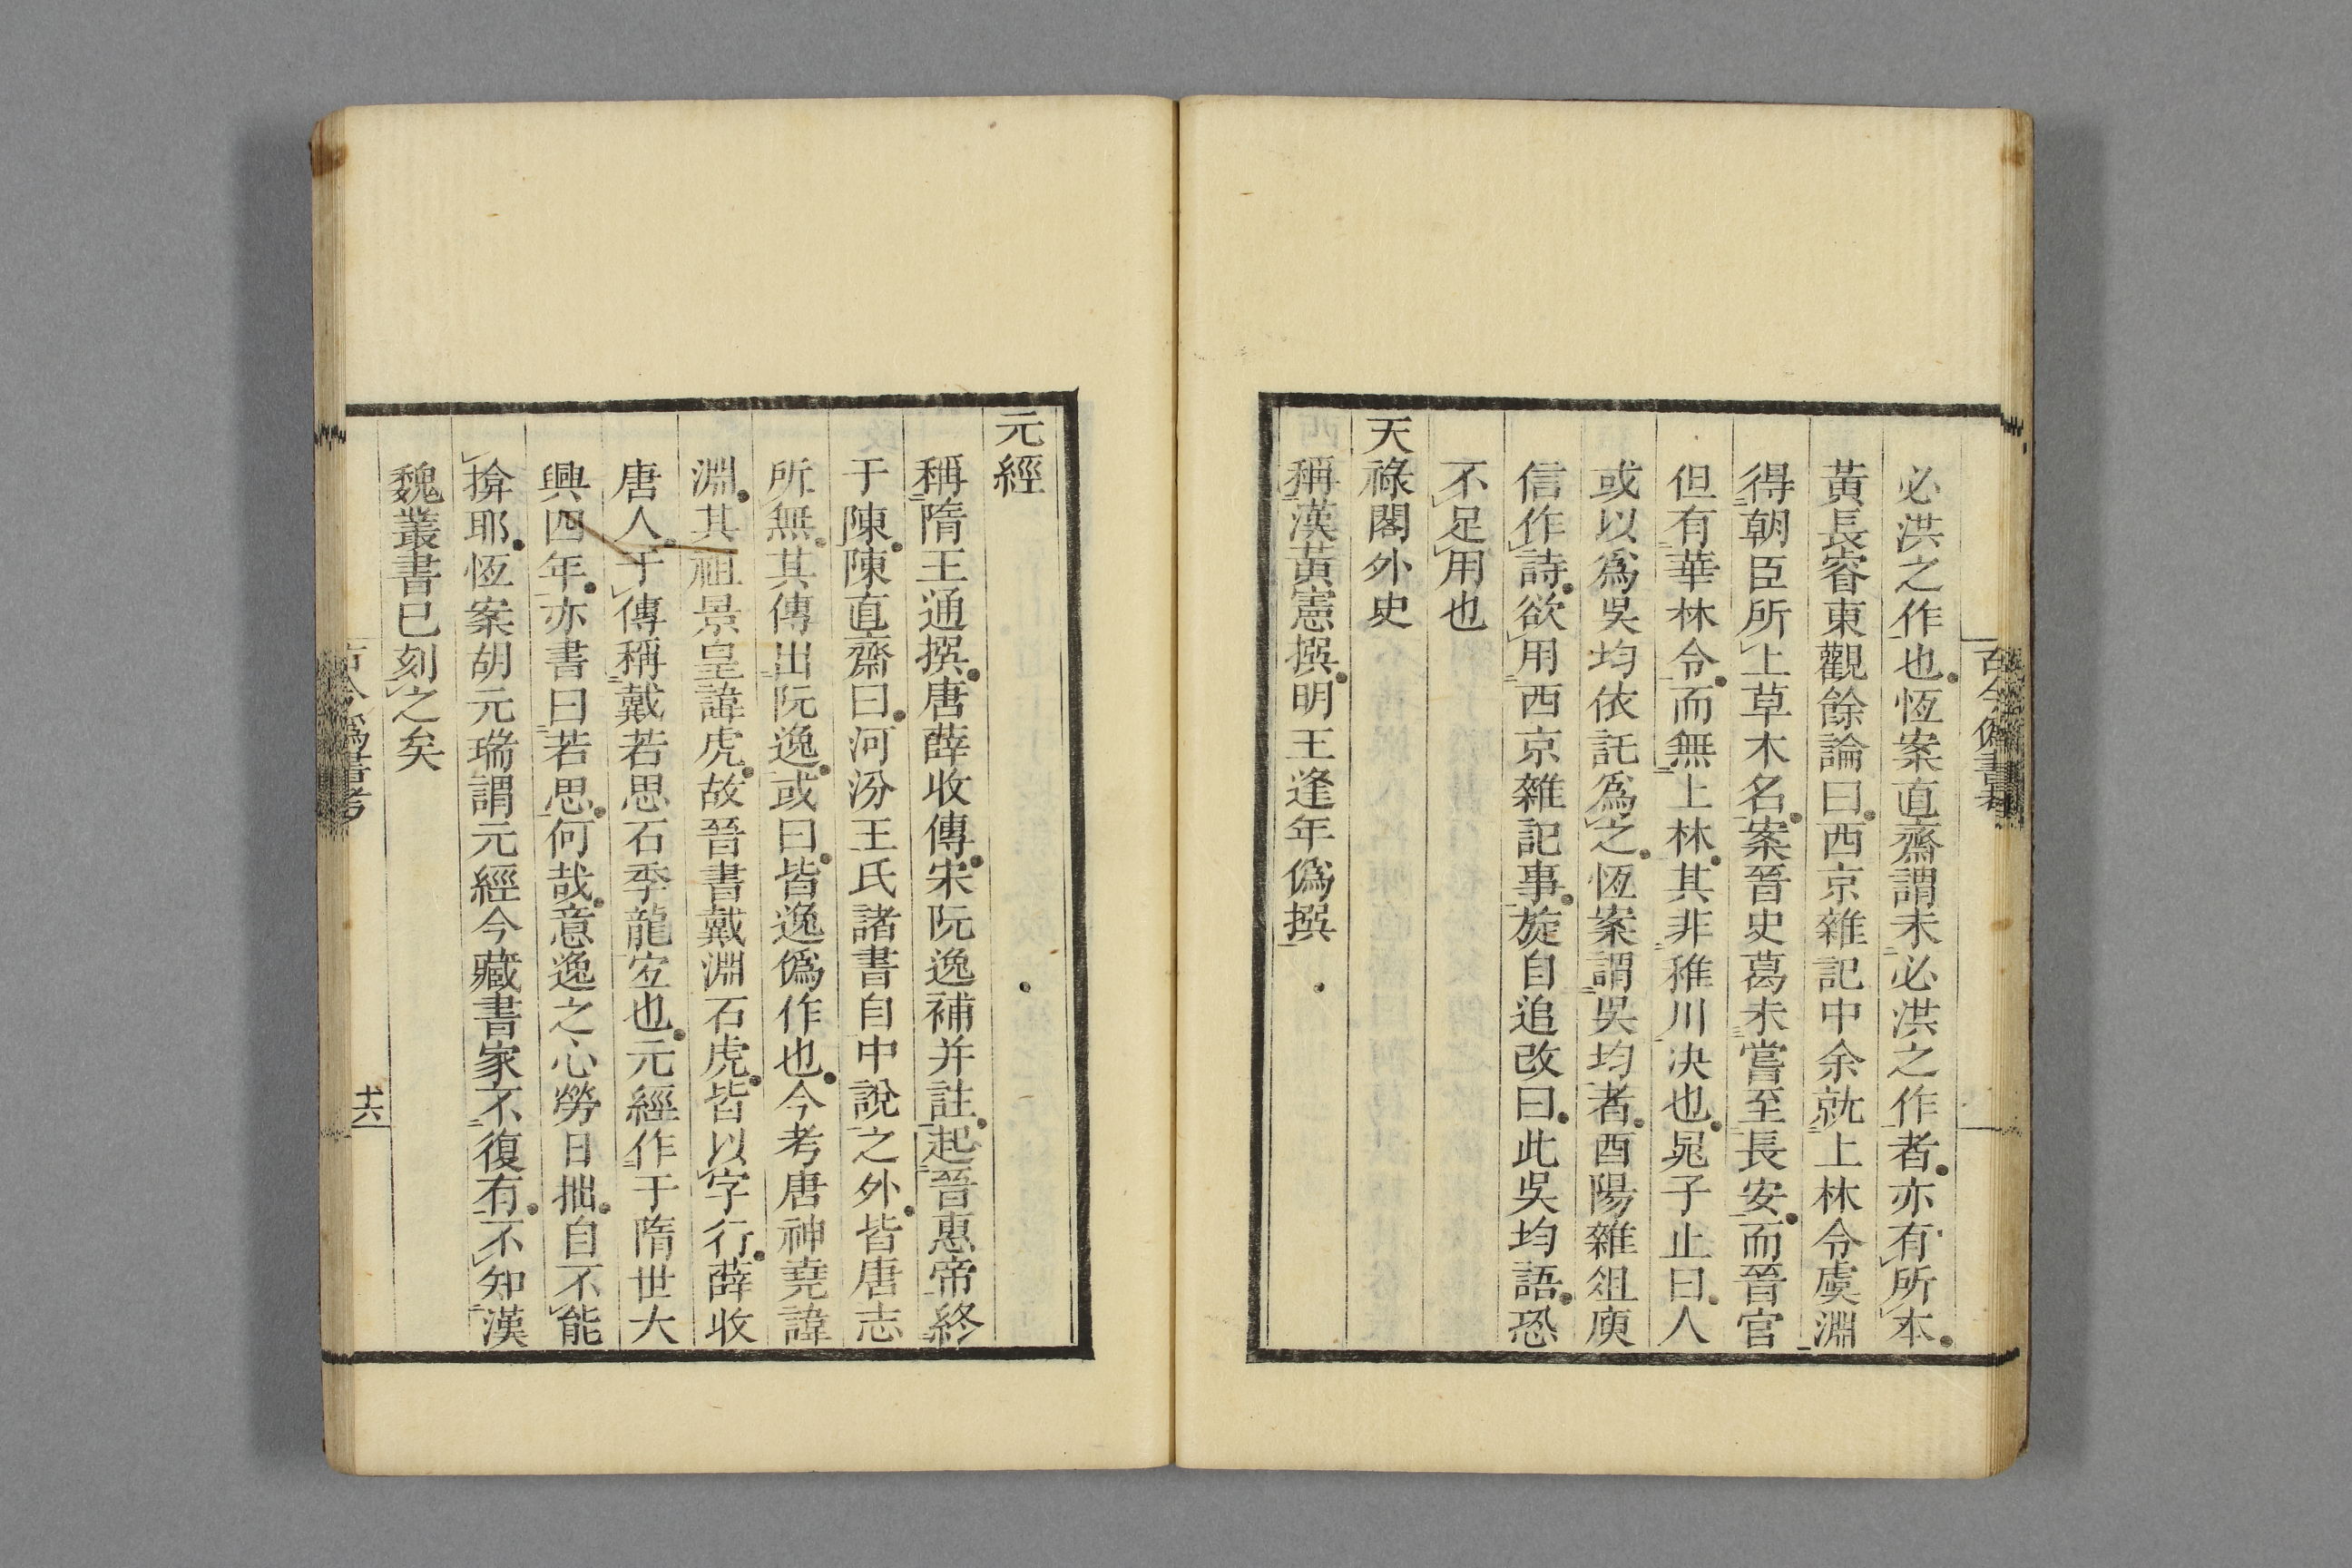 必洪之作也恆案直齋謂未必洪之作者亦有所本
黃長睿東觀餘論曰西京雜記中余就上林令虞淵
得朝臣所上草木名案晉史葛未嘗至長安而晉官
但有華林令而無上林其非稚川決也晁子止曰人
或以爲吳均依託爲之恆案謂吳均者酉陽雜俎庾
信作詩欲用西京雜記事旋自追改曰此吳均語恐
不足用也
天祿閣外史
稱漢黃憲撰明王逢年僞撰
元經
稱隋王通撰唐薛收傳宋阮逸補并註起晉惠帝終
于陳陳直齋曰河汾王氏諸書自中說之外皆唐志
所無其傳出阮逸或曰皆逸僞作也今考唐神堯諱
淵其祖景皇諱虎故晉書戴淵石虎皆以字行薛收
唐人于傳稱戴若思石季龍宜也元經作于隋世大
興四年亦書曰若思何哉意逸之心勞日拙自不能
揜耶恆案胡元瑞謂元經今藏書家不復有不知漢
魏叢書已刻之矣
古今僞書考
十六